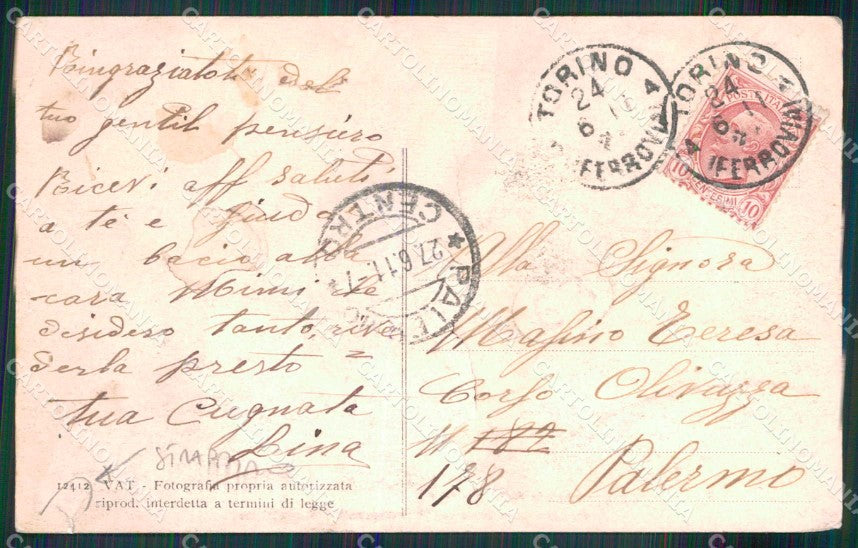 Ringraziatolo del
tuo gentil pensiero
Ricevi aff saluti
a te e Giuda
un bacio alla
cara Mimi che
desidero tanto, rive
derla presto =
tua Cugnata
Lina
12412 VAT - Fotografia propria autorizzata
riprod. interdetta a termini di legge
TORINO
24
6
FERROVIA
TORINO
24
6
FERROVIA
POSTE ITALIANE
10 CENTESIMI 10
PALERMO CENTRO
27.6.11.-7
Alla Signora
Masino Teresa
Corso Olivuzza
N 182
178
Palermo